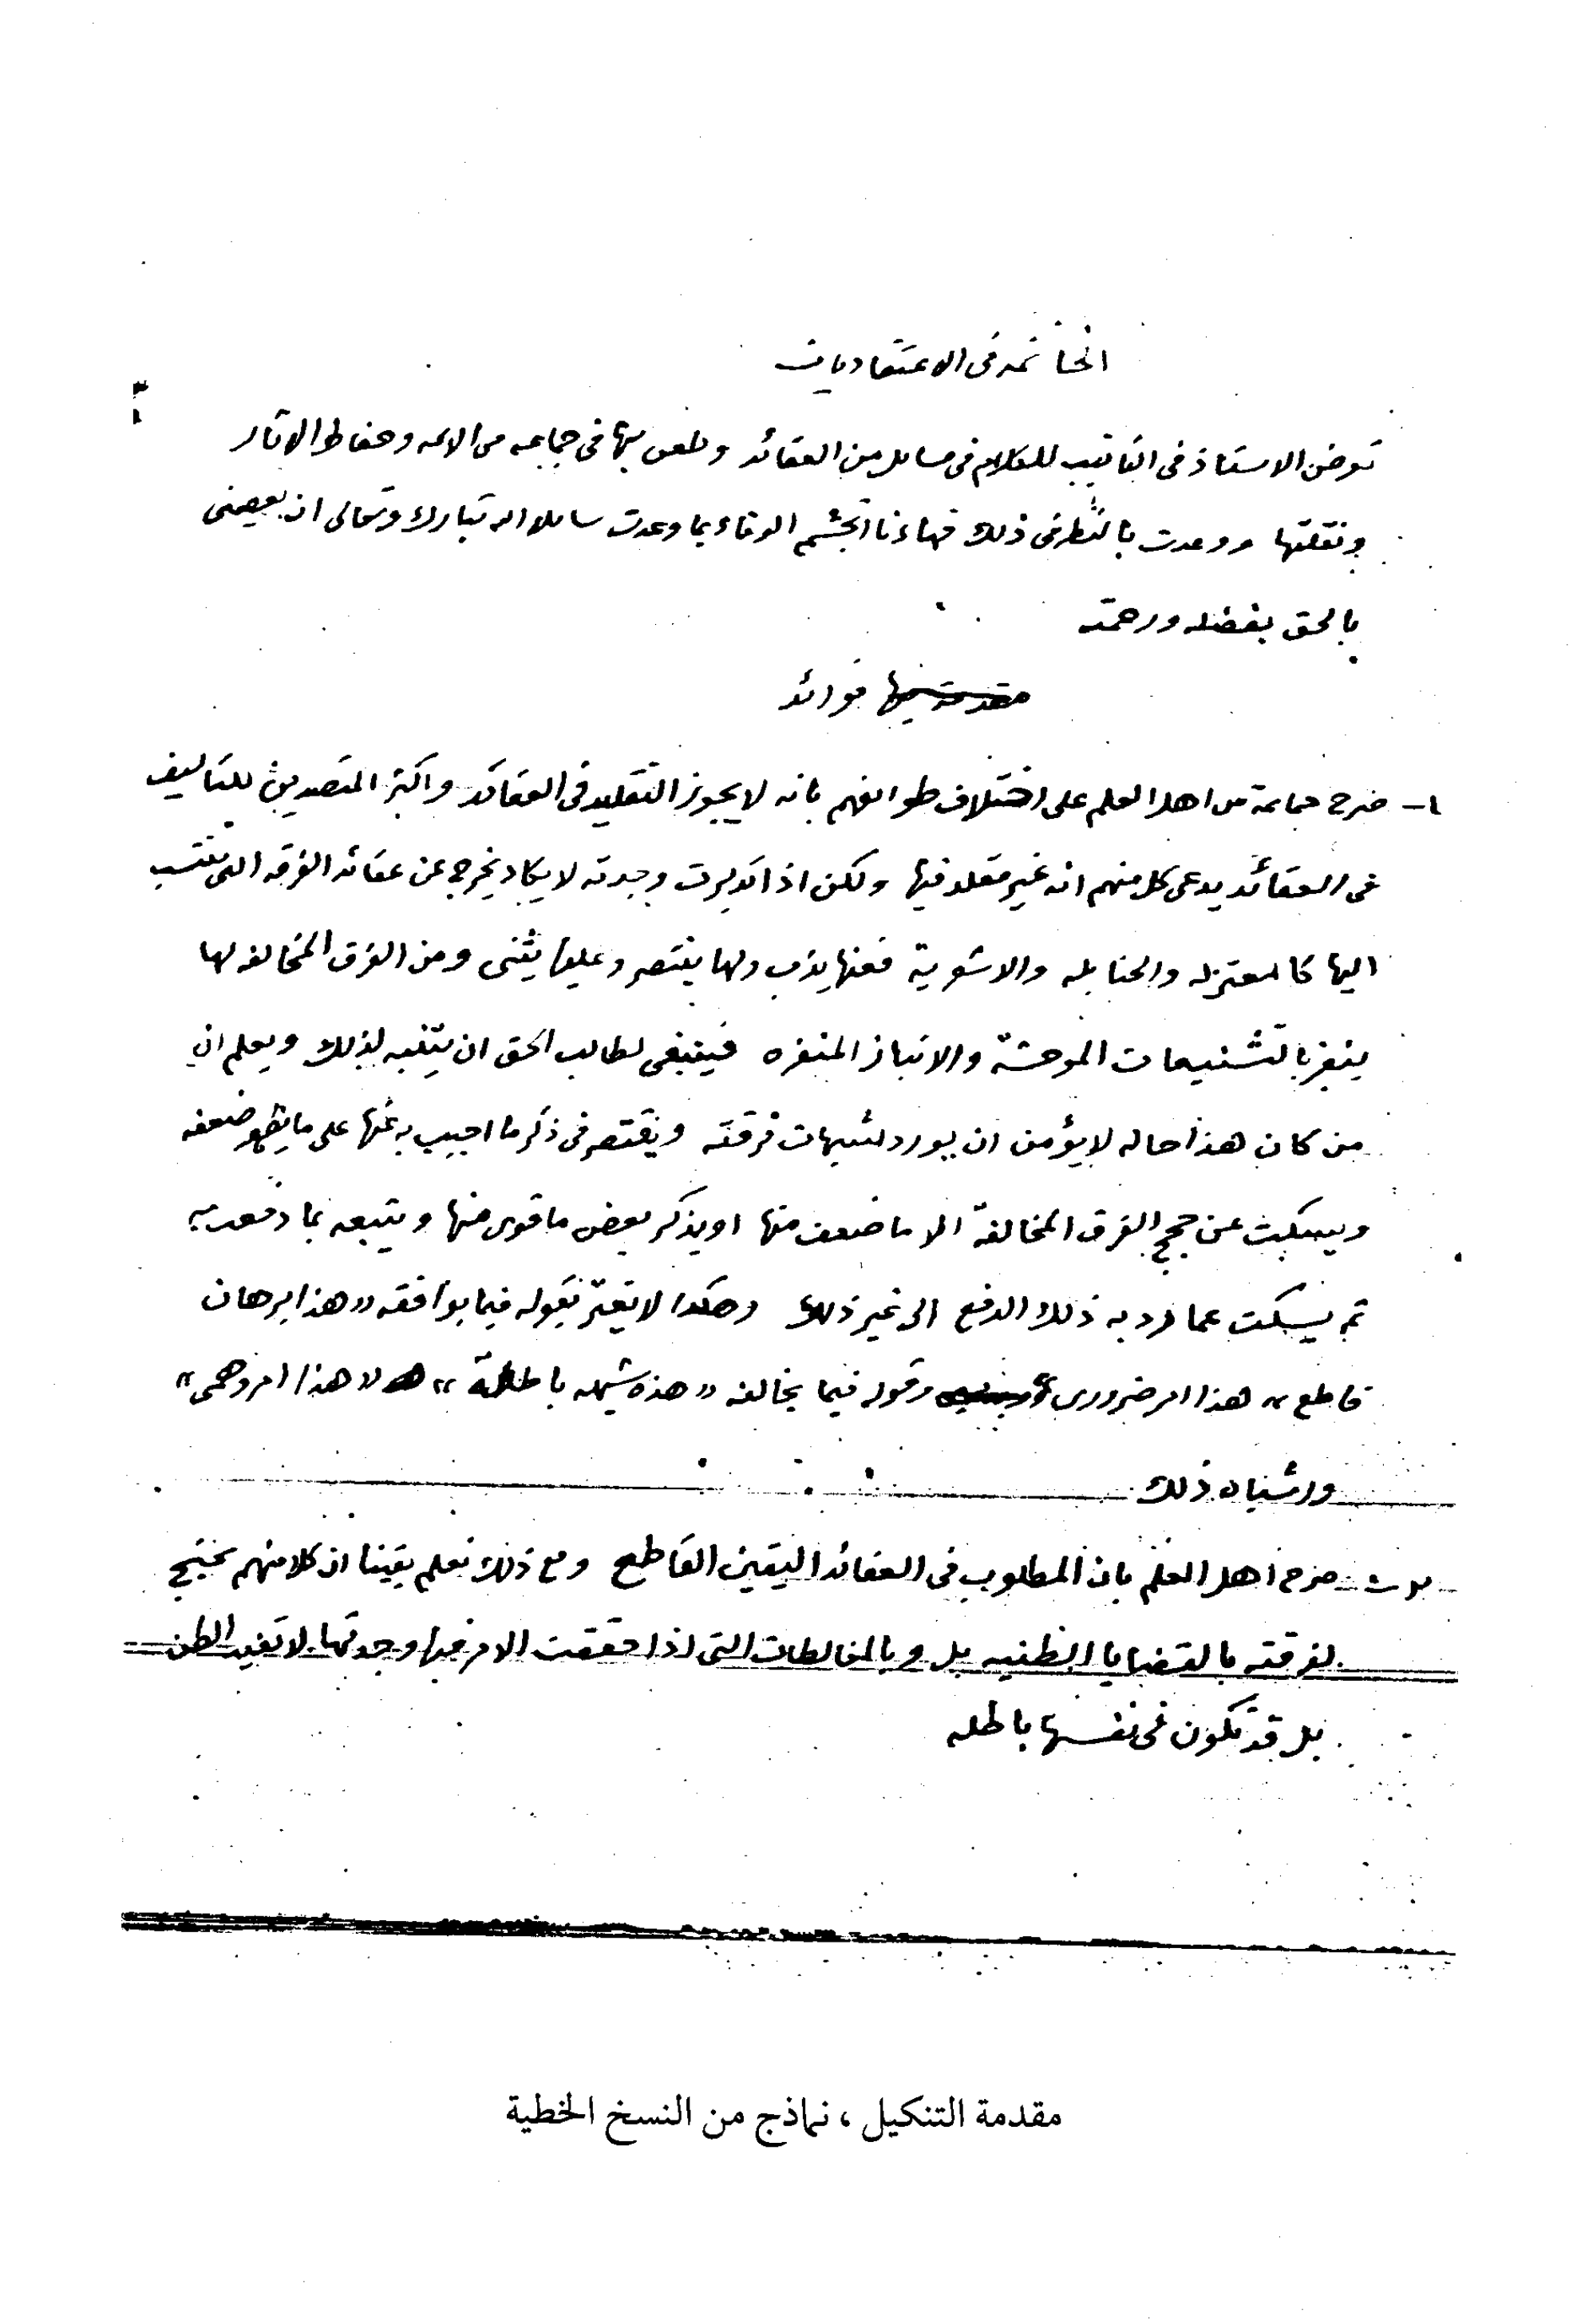 الخاتمه فى الاعتقاديات
تعرض الاستاذ فى التانيب للكلام فى مسايل من العقائد وطعن بها فى جماعه من الائمه وحفاظ الاثار
ونقلتها ووعدت بالنظر فى ذلك فهاءنا اتجشم الوفاء بما وعدت سايلا الله تبارك وتعالى ان يعيننى
بالحق بفضله ورحمته
مقدمة فيها فوائد
١- صرح جماعة من اهل العلم على اختلاف طوائفهم بانه لا يجوز التقليد فى العقائد واكثر المتصدين للتاليف
فى العقائد يدعى كل منهم انه غير مقلد فيها ولكن اذا تدبرت وجدته لا يكاد يخرج عن عقائد الفرقه التى ينتسب
اليها كالمعتزله والحنابله والاشعرية فعنها يذب ولها ينتصر وعليها يثنى ومن الفرق المخالفه لها
ينفر بالتشنيعات الموحشة والانباز المنفره فينبغى لطالب الحق ان يتنبه لذلك ويعلم ان
من كان هذا حاله لا يؤمن ان يورد شبهات فرقته ويقتصر فى ذكر ما اجيب به عنها على ما يظهر ضعفه
ويسكت عن حجج الفرق المخالفة الا ما ضعف منها او يذكر بعض ما قوى منها ويتبعه بما دفعت به
ثم يسكت عما رد به ذلك الدفع الى غير ذلك وهكذا لا يغتر بقوله فيما يوافقه «هذا برهان
قاطع» هذا امر ضرورى وقوله فيما يخالفه «هذه شبهه باطلة» «هذا امر وهمى»
واشباه ذلك
صرح اهل العلم بان المطلوب فى العقائد اليقين القاطع ومع ذلك نعلم يقينا ان كلا منهم يحتج
لفرقته بالقضايا الظنيه بل وبالمغالطات التى اذا حققت الامر فيها وجدتها لا تفيد الظن
بل قد تكون فى نفسها باطله
مقدمة التنكيل ، نماذج من النسخ الخطية